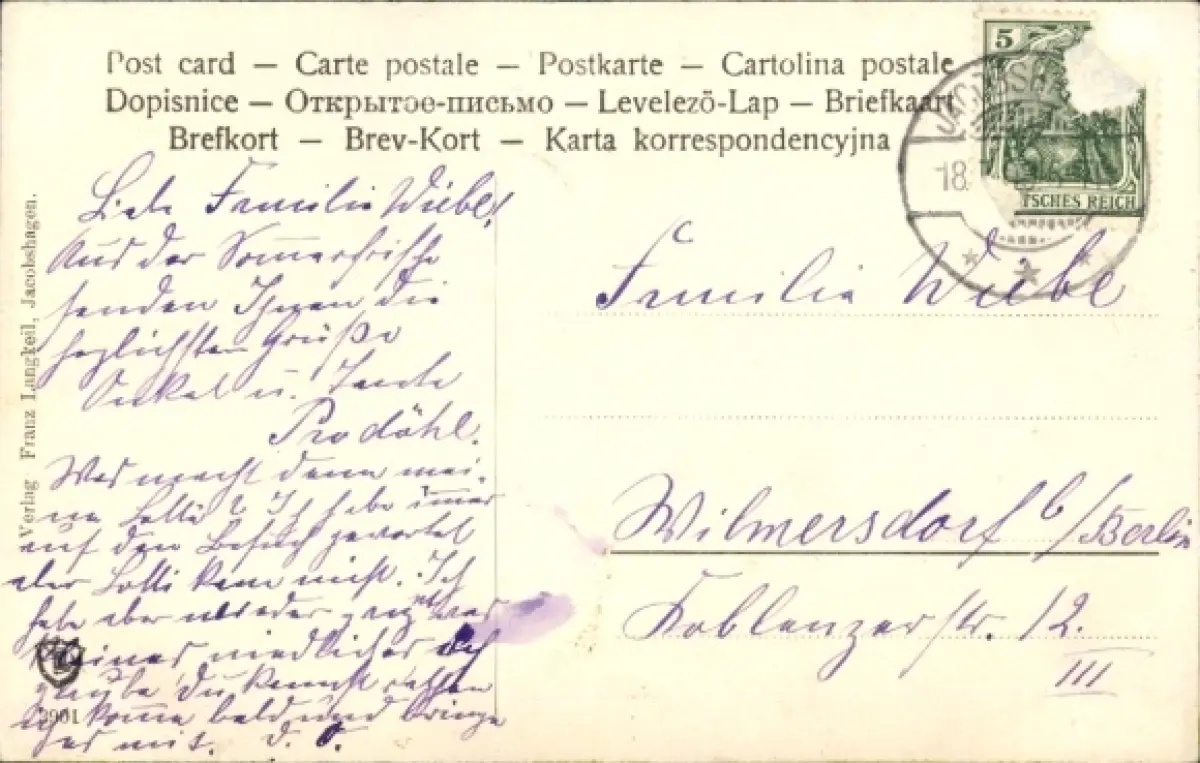 Post card — Carte postale — Postkarte — Cartolina postale
Dopisnice — Открытое-письмо — Levelező-Lap — Briefkaart
Brefkort — Brev-Kort — Karta korrespondencyjna
5
TSCHES REICH
18.
Verlag Franz Langkeil, Jacobshagen.
Liebe Familie Wiebe!
Aus der Sommerfrische
senden Ihnen die
herzlichsten Grüße
Onkel u. Tante
Prodöhl.
Was macht denn mei-
ne Lotti? Ich habe immer
auf den Besuch gewartet
aber Lotti kam nicht. Ich
habe aber wieder ganz was
kleines niedliches ich
glaube du kannst rathen
komme bald und bringe
es mit. d. O.
2901
Familie Wiebe
Wilmersdorf b/Berlin
Koblenzerstr. 12.
III